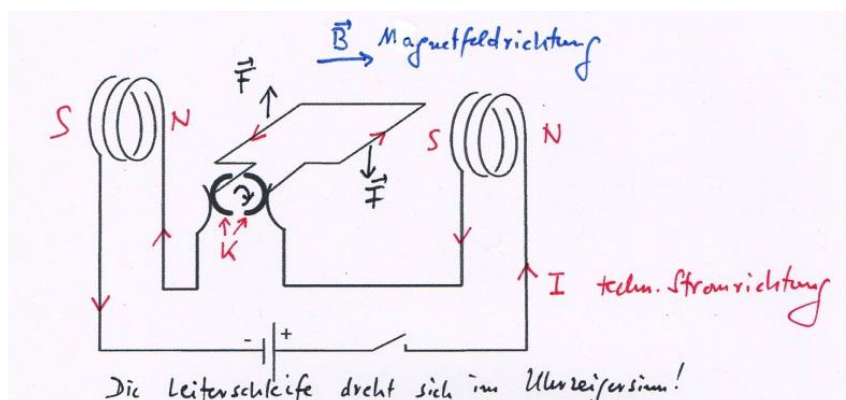 B Magnetfeldrichtung
F
S N S N
F
K
I techn. Stromrichtung
- +
Die Leiterschleife dreht sich im Uhrzeigersinn!